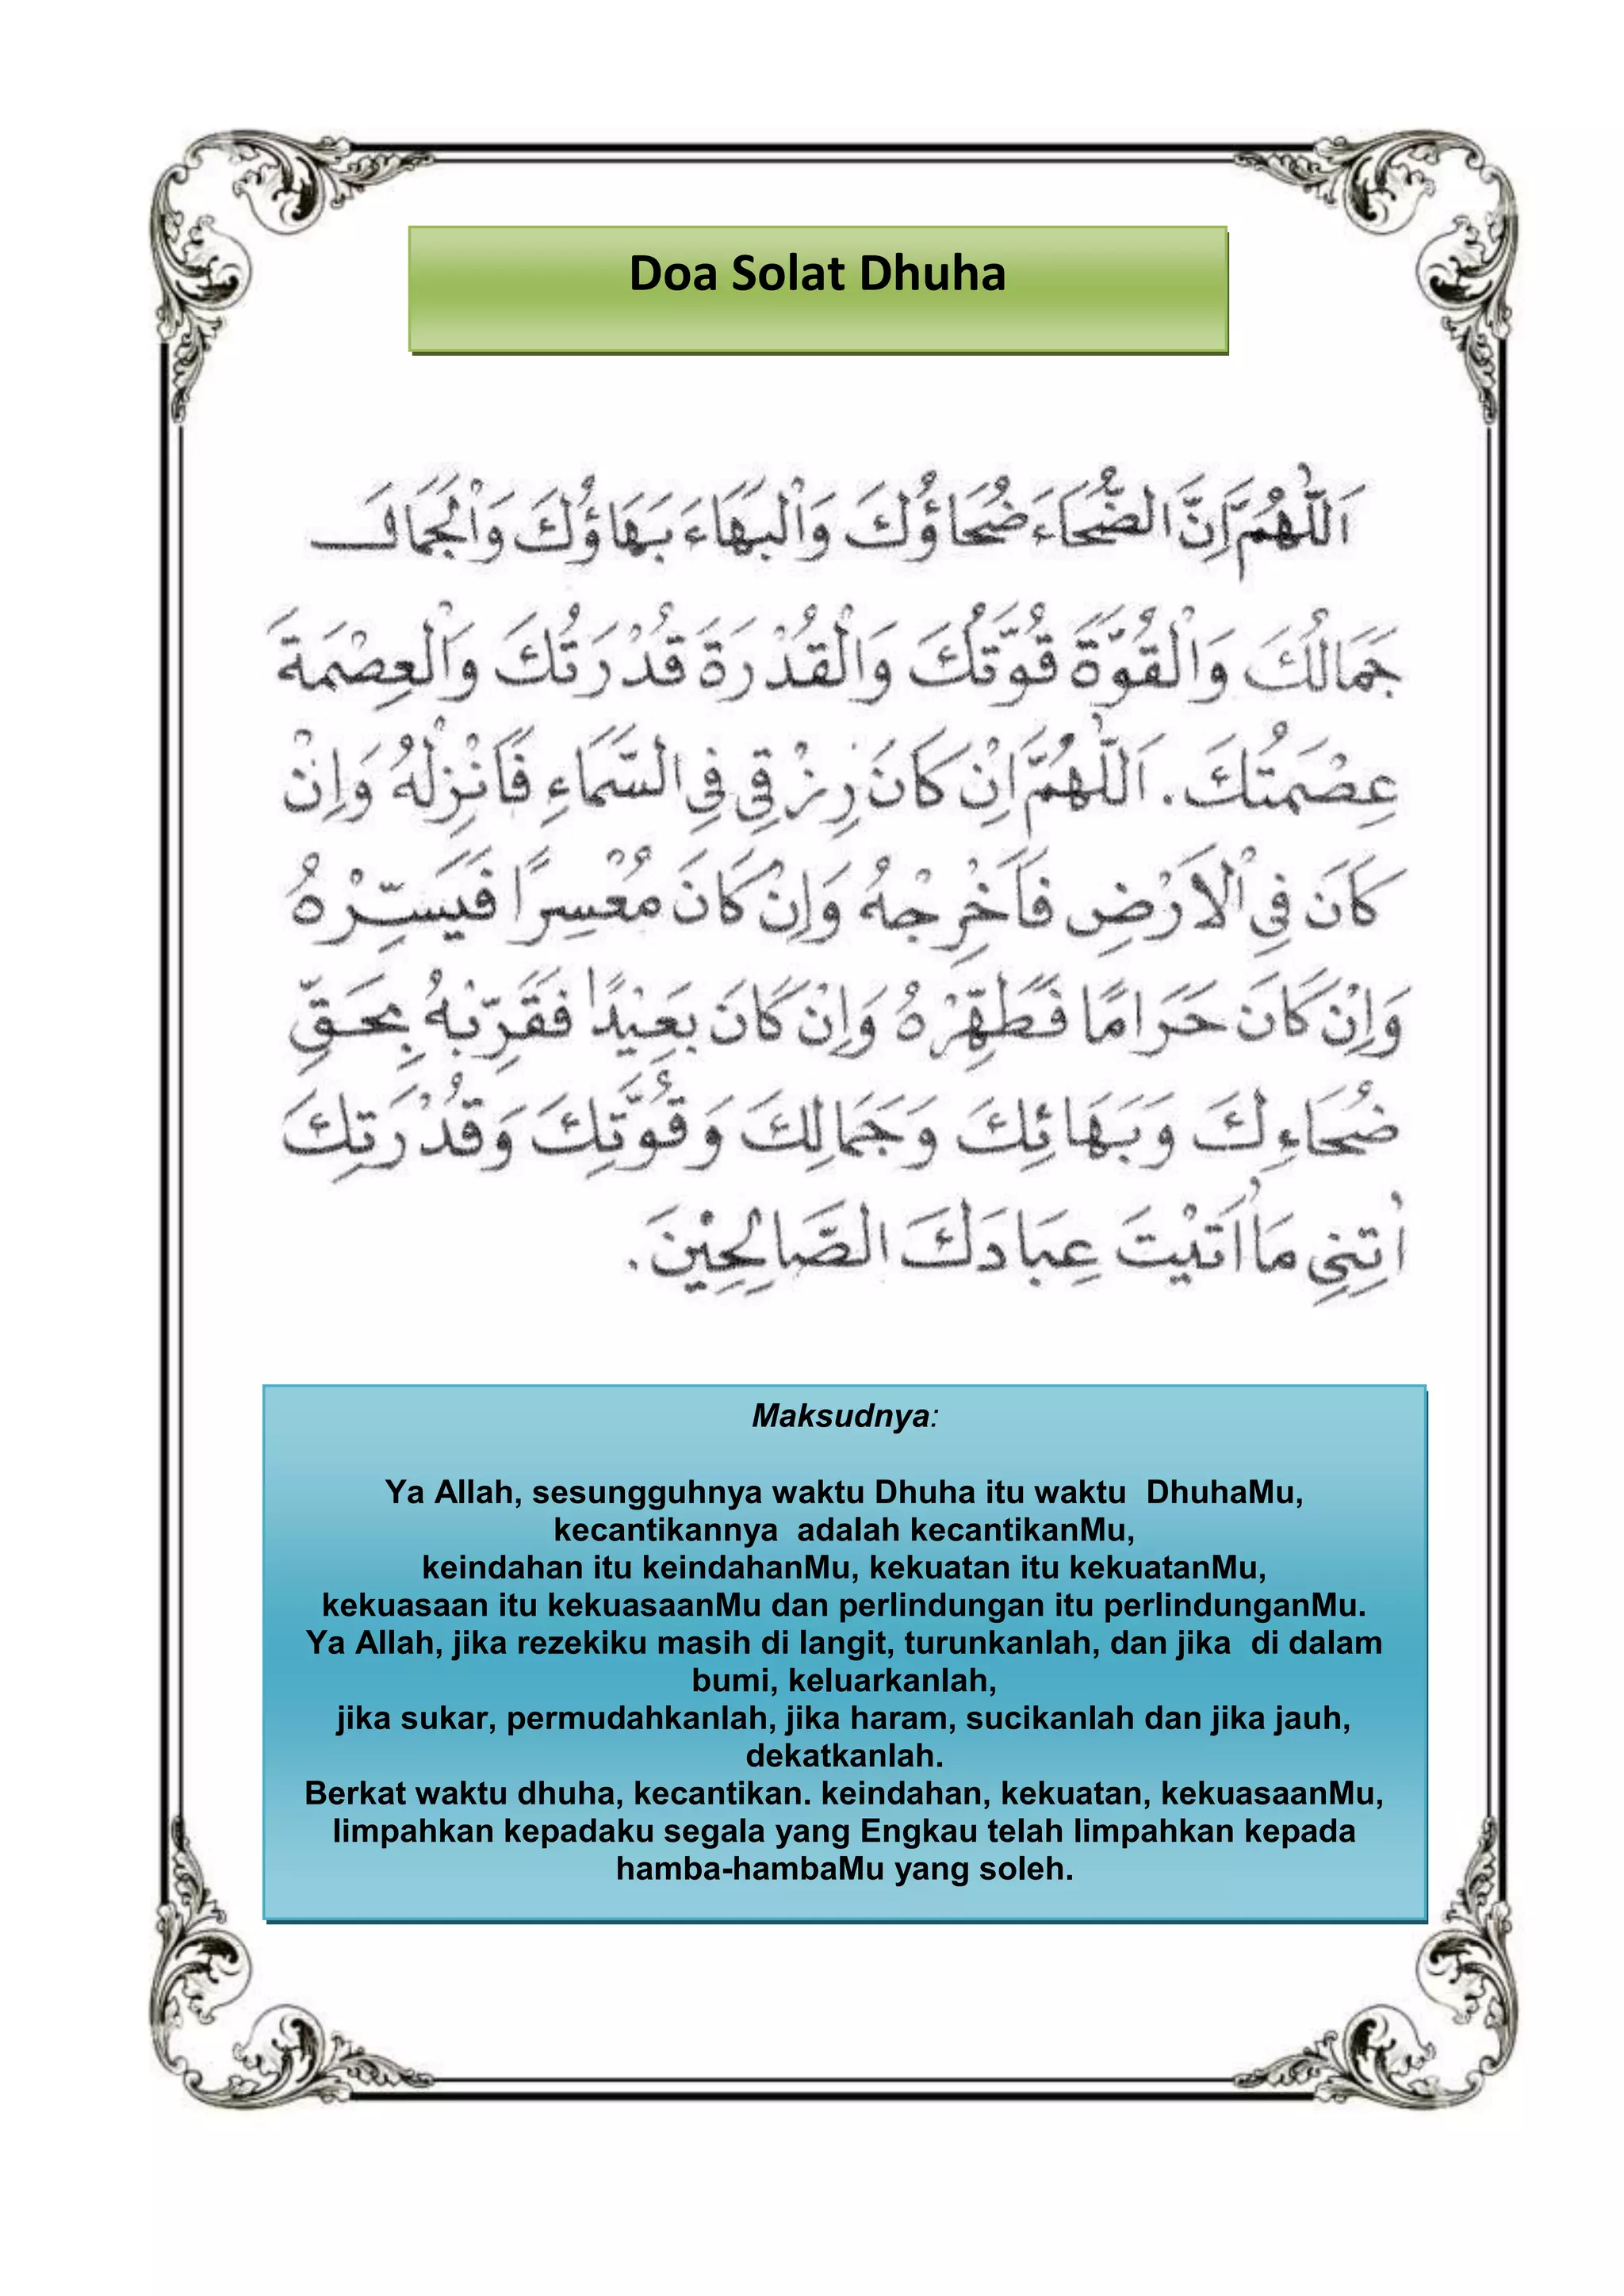 Doa Solat Dhuha
اَللّٰهُمَّ اِنَّ الضُّحَاءَ ضُحَاؤُكَ وَالْبَهَاءَ بَهَاؤُكَ وَالْجَمَالَ
جَمَالُكَ وَالْقُوَّةَ قُوَّتُكَ وَالْقُدْرَةَ قُدْرَتُكَ وَالْعِصْمَةَ
عِصْمَتُكَ. اَللّٰهُمَّ اِنْ كَانَ رِزْقِى فِى السَّمَاءِ فَاَنْزِلْهُ وَاِنْ
كَانَ فِى اْلاَرْضِ فَاَخْرِجْهُ وَاِنْ كَانَ مُعْسِرًا فَيَسِّرْهُ
وَاِنْ كَانَ حَرَامًا فَطَهِّرْهُ وَاِنْ كَانَ بَعِيْدًا فَقَرِّبْهُ بِحَقِّ
ضُحَاءِكَ وَبَهَائِكَ وَجَمَالِكَ وَقُوَّتِكَ وَقُدْرَتِكَ
اٰتِنِى مَا اَتَيْتَ عِبَادَكَ الصَّالِحِيْنَ.
Maksudnya:
Ya Allah, sesungguhnya waktu Dhuha itu waktu DhuhaMu,
kecantikannya adalah kecantikanMu,
keindahan itu keindahanMu, kekuatan itu kekuatanMu,
kekuasaan itu kekuasaanMu dan perlindungan itu perlindunganMu.
Ya Allah, jika rezekiku masih di langit, turunkanlah, dan jika di dalam
bumi, keluarkanlah,
jika sukar, permudahkanlah, jika haram, sucikanlah dan jika jauh,
dekatkanlah.
Berkat waktu dhuha, kecantikan. keindahan, kekuatan, kekuasaanMu,
limpahkan kepadaku segala yang Engkau telah limpahkan kepada
hamba-hambaMu yang soleh.